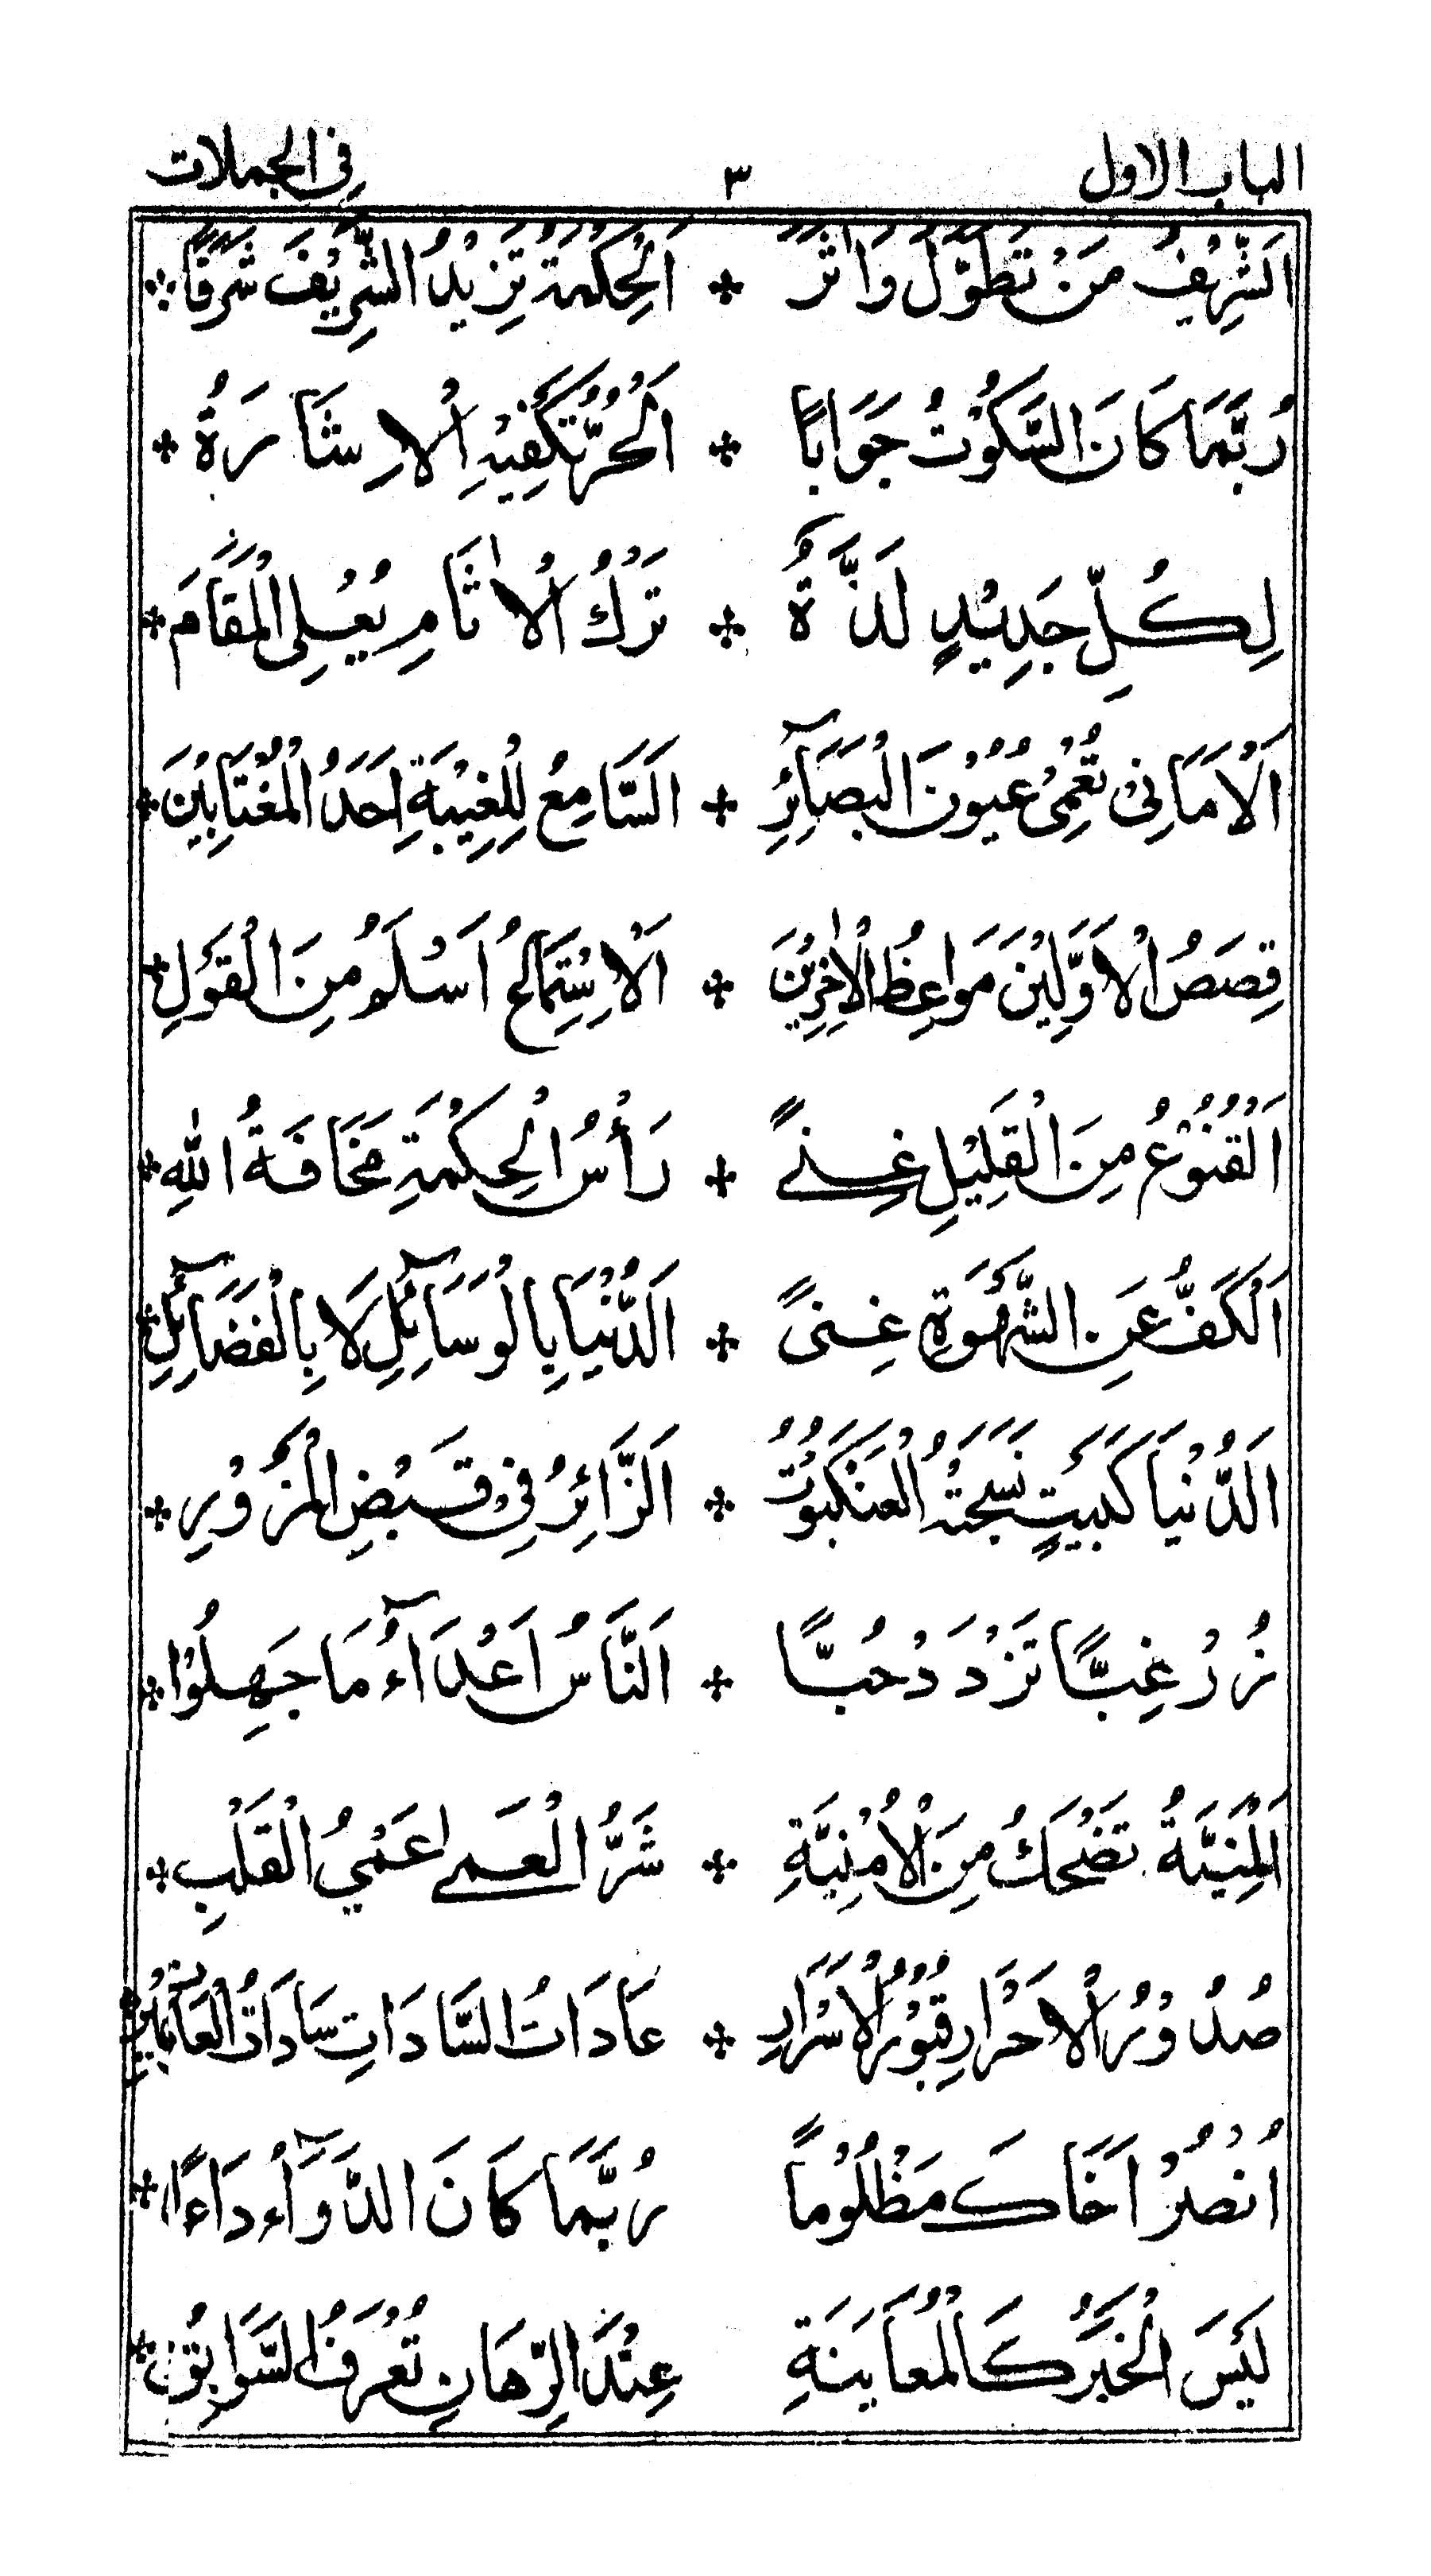 الباب الاول ٣ فى الجملات
اَلشَّرِيْفُ مَنْ تَطَوَّلَ وَاٰثَرَ ✤ اَلْحِكْمَةُ تَزِيْدُ الشَّرِيْفَ شَرَفًا
رُبَّمَا كَانَ السَّكُوْتُ جَوَابًا ✤ اَلْحُرُّ تَكْفِيْهِ الْاِشَارَةُ ✤
لِكُلِّ جَدِيْدٍ لَذَّةٌ ✤ تَرْكُ الْاٰثَامِ يُعْلِى الْمَقَامَ ✤
اَلْاَمَانِىْ تُعْمِىْ عُيُوْنَ الْبَصَآئِرِ ✤ اَلسَّامِعُ لِلْغِيْبَةِ اَحَدُ الْمُغْتَابِيْنَ ✤
قِصَصُ الْاَوَّلِيْنَ مَوَاعِظُ الْاٰخِرِيْنَ ✤ اَلْاِسْتِمَاعُ اَسْلَمُ مِنَ الْقَوْلِ ✤
اَلْقُنُوْعُ مِنَ الْقَلِيْلِ غِنًے ✤ رَأْسُ الْحِكْمَةِ مَخَافَةُ اللّٰهِ ✤
اَلْكَفُّ عَنِ الشَّهْوَةِ غِنىً ✤ اَلدُّنْيَا بِالْوَسَآئِلِ لَا بِالْفَضَآئِلِ ✤
اَلدُّنْيَا كَبَيْتٍ نَسَجَتْهُ الْعَنْكَبُوْتُ ✤ اَلزَّائِرُ فِىْ قَبْضِ الْمَزُوْرِ ✤
زُرْ غِبًّا تَزْدَدْ حُبًّا ✤ اَلنَّاسُ اَعْدَآءُ مَا جَهِلُوْا ✤
اَلْمَنِيَّةُ تَضْحَكُ مِنَ الْاُمْنِيَّةِ ✤ شَرُّ الْعَمےٰ عَمْيُ الْقَلْبِ ✤
صُدُوْرُ الْاَحْرَارِ قُبُوْرُ الْاَسْرَارِ ✤ عَادَاتُ السَّادَاتِ سَادَاتُ الْعَادَاتِ
اُنْصُرْ اَخَاكَ مَظْلُوْمًا رُبَّمَا كَانَ الدَّوَآءُ دَاءًا ✤
لَيْسَ الْخَبَرُ كَالْمُعَايَنَةِ عِنْدَ الرِّهَانِ تُعْرَفُ السَّوَابِقُ ✤